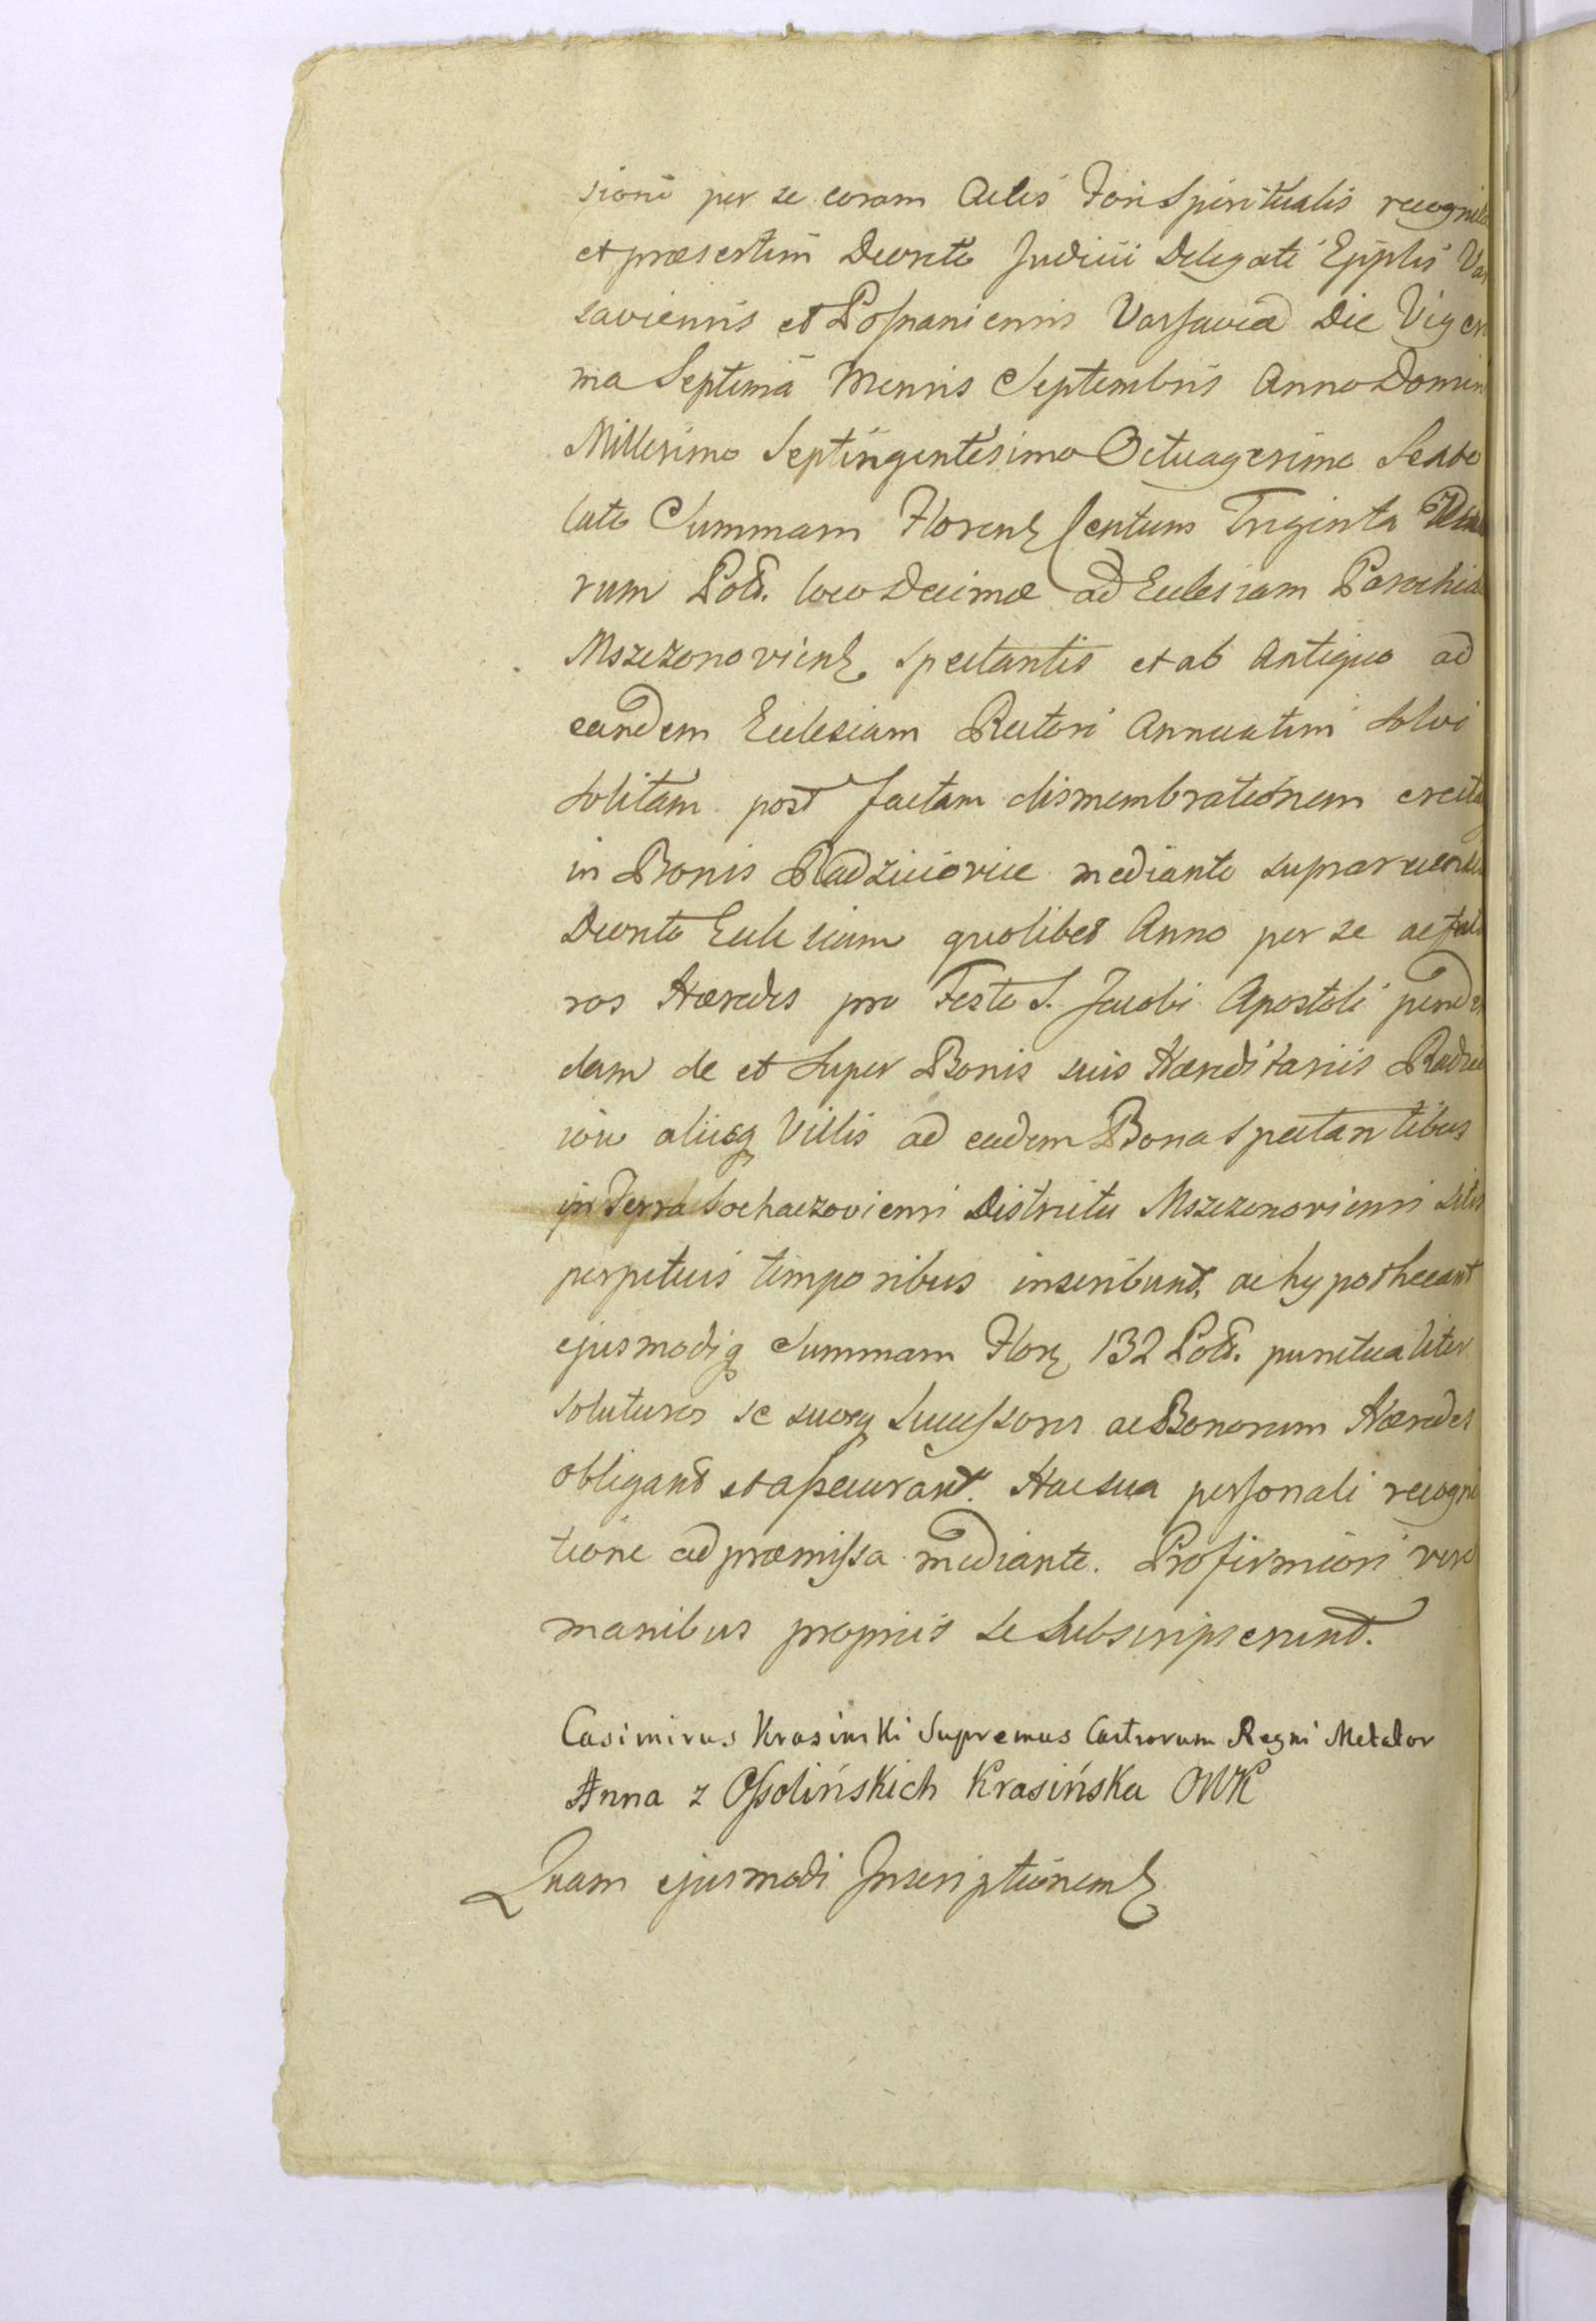 sioni per se coram Actis Fori Spiritualis recognito
et præsertim Decreto Judicii Delegati Epplis Var
saviensis et Posnaniensis Varsaviæ Die Viges
ma Septima Mensis Septembris Anno Domini
Millesimo Septingentesimo Octuagesimo Sexto
lato Summam Floren Centum Triginta
rum Pol. loco Decimæ ad Ecclesiam Parochia
Mszczonovien spectantis et ab Antiquo ad
eandem Ecclesiam Rectori Annuatim solvi
solitam post factam dismembrationem erectæ
in Bonis Radzieiovice mediante supra
Decreto Ecclesiam quolibet Anno per se ac
ros Hæredes pro Festo S. Jacobi Apostoli pend
dam de et super Bonis suis Hæreditariis Radzie
iov aliisq Villis ad eadem Bona spectantibus
in Terra Sochaczoviensi Districtu Mszczonoviensi sitis
perpetuis temporibus inscribunt, ac hypothecant
ejusmodiq Summam Flor 132 Pol. punctualiter
soluturos se suosq Successores ac Bonorum Hæredes
obligant et assecurant. Hac sua personali recogni
tione ad præmissa mediante. Pro firmiori vero
manibus propriis se subscripserunt.
Casimirus Krasinski Supremus Castrorum Regni Metator
Anna z Ossolińskich Krasińska OWK
Quam ejusmodi Inscriptionem